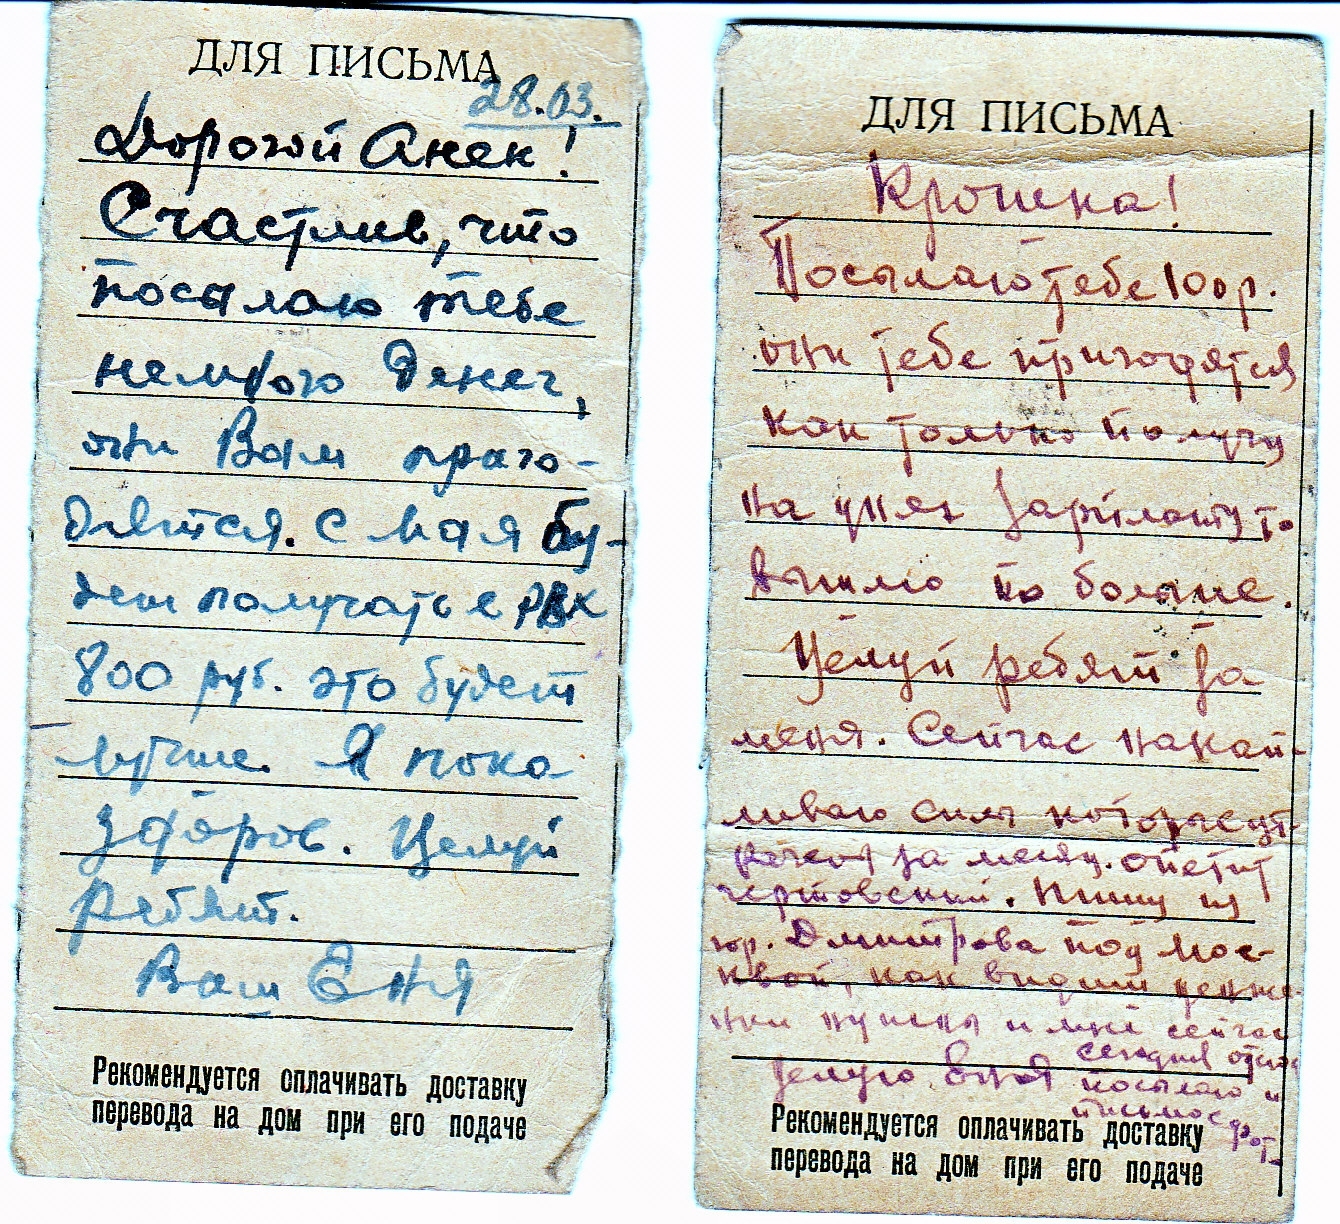 ДЛЯ ПИСЬМА
28.03.
Дорогой Анек!
Счастлив, что
посылаю тебе
немного денег,
они Вам праго-
дятся. С мая бу-
дем получать с РВК
800 руб. это будет
лучше. Я пока
здоров. Целуй
ребят.
Ваш Еня
Рекомендуется оплачивать доставку
перевода на дом при его подаче
ДЛЯ ПИСЬМА
Крошка!
Посылаю тебе 100 р.
они тебе пригодятся
как только получу
на днях зарплату то
вышлю по больше.
Целуй ребят за
меня. Сейчас накап-
ливаю силы которые
за месяц. апетит
чертовский. Пишу из
гор. Дмитрова под Мос-
квой, как видишь денже-
нки нужны и мне сейчас
целую Еня
сегодня
посылаю и
письмо с
Рекомендуется оплачивать доставку
перевода на дом при его подаче